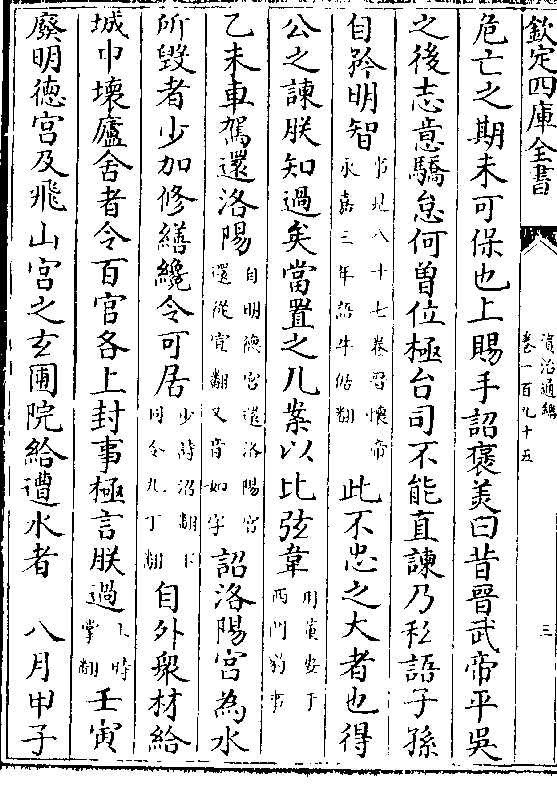 欽定四庫全書
資治通鑑
卷一百九十五
三
危亡之期未可保也上賜手詔褒美曰昔晉武帝平吳
之後志意驕怠何曾位極台司不能直諫乃私語子孫
自矜明智事見八十七卷晉懷帝永嘉三年語牛倨翻此不忠之大者也得
公之諫朕知過矣當置之几案以比弦韋用董安于西門豹事
乙未車駕還洛陽自明德宮還洛陽宮還從宣翻又音如字詔洛陽宮為水
所毀者少加修繕纔令可居少詩沼翻下同令九丁翻自外衆材給
城中壞廬舍者令百官各上封事極言朕過上時掌翻壬寅
廢明德宮及飛山宮之玄圃院給遭水者 八月甲子